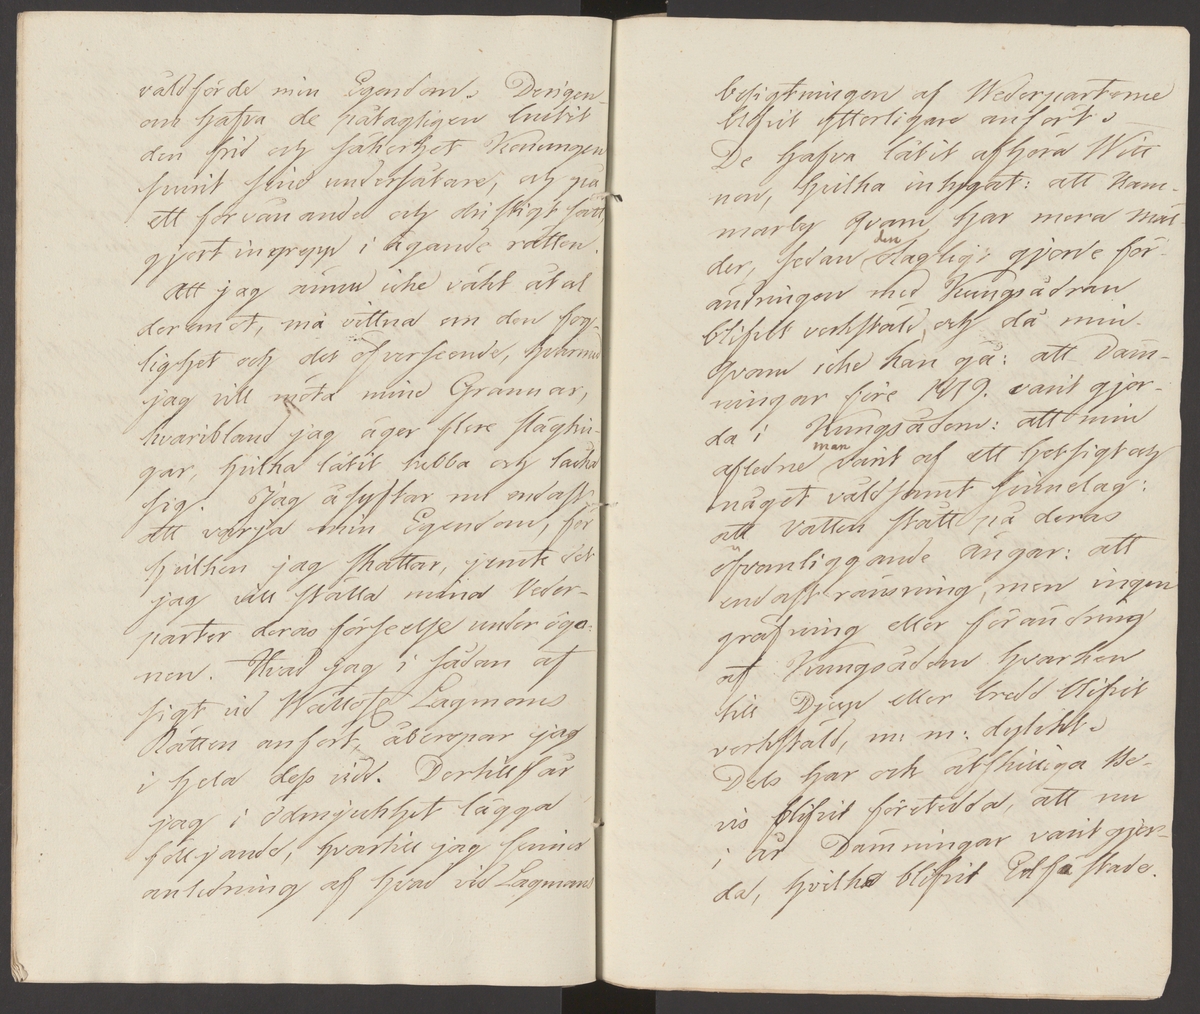 våldförde min Egendom. Derigen-
om hafva de påtagligen brutit
den frid och säkerhet Konungen
svurit sine undersåtare, och på
ett förvånande och driftigt sätt
gjort ingrepp i ägande rätten.
Att jag ännu icke väkt åtal
deremot, må vittna om den fog-
lighet och det öfverseende, hvarmed
jag vill möta mine Grannar,
hvaribland jag äger flere slägtin-
gar, hvilka låtit  och locka
sig. Jag åsyftar nu endast
att värja min Egendom, för
hvilken jag skattar, jemte det
jag vill ställa mina Veder-
parter deras förseelse under ögo-
nen. Hvad jag i sådan af
sigt vid Wällofl. Lagmans
Rätten anfört, åberopar jag
i hela dess vid. Dertill får
jag i ödmjukhet lägga
följande, hvartill jag finner
anledning af hvad vid Lagmans
besigtningen af Wederparterne
blifvit ytterligare anfört.
De hafva låtit afhöra Witt
nen, hvilka intygat: att Ham-
marby Qvarn har mera Mäl-
der, sedan den olagligt gjorde för-
ändringen med Kungsådran
blifvit verkstäld, och då min
Qvarn icke kan gå: att Däm-
ningar före 1819. varit gjor-
da i Kungsådern: att min
aflednе man varit af ett hetsigt och
något våldsamt sinnelag:
att vatten stått på deras
ofvanliggande ängar: att
endastränsning, men ingen
gräfning eller förändring
af Kungsådern hvarken
till Djup eller bredd blifvit
verkstäld, m: m: dylikt.
Dels har och åtskilliga Be-
vis blifvit företedda, att nu
i år Dämningar varit gjor-
da, hvilka blifvit  stade.